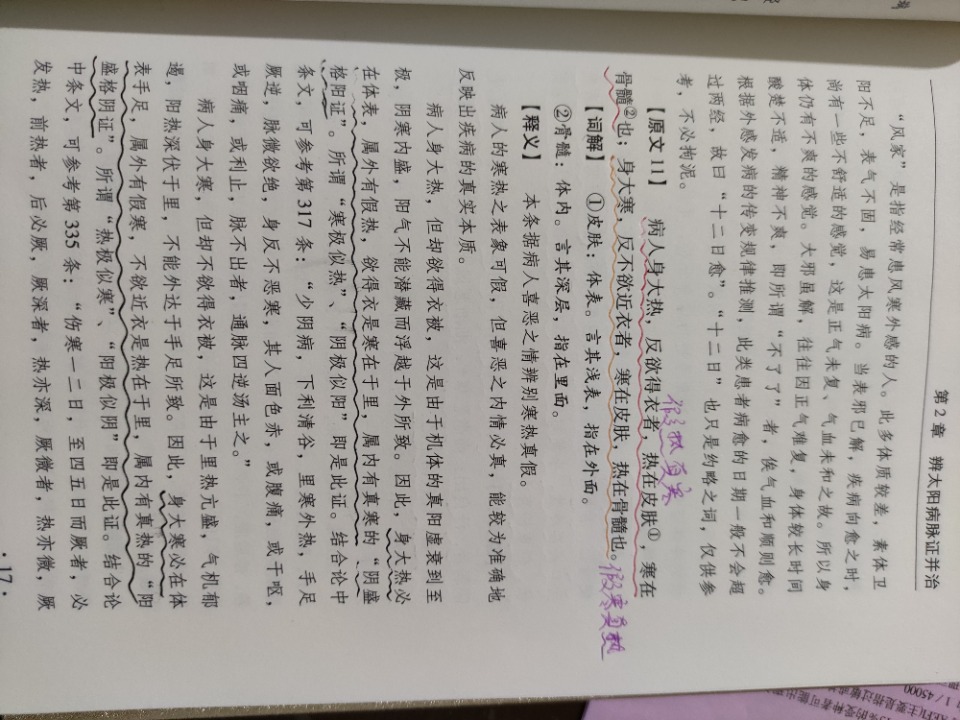 第2章 辨太阳病脉证并治
“风家”是指经常患风寒外感的人。此多体质较差，素体卫
阳不足，表气不固，易患太阳病。当表邪已解，疾病向愈之时，
尚有一些不舒适的感觉，这是正气未复、气血未和之故。所以身
体仍有不爽的感觉。大邪虽解，往往因正气难复，身体较长时间
酸楚不适，精神不爽，即所谓“不了了”者，俟气血和顺则愈。
根据外感发病的传变规律推测，此类患者病愈的日期一般不会超
过两经，故曰“十二日愈”。“十二日”也只是约略之词，仅供参
考，不必拘泥。
假热真寒
【原文11】 病人身大热，反欲得衣者，热在皮肤①，寒在
骨髓②也；身大寒，反不欲近衣者，寒在皮肤，热在骨髓也。
假寒真热
【词解】 ①皮肤：体表。言其浅表，指在外面。
②骨髓：体内。言其深层，指在里面。
【释义】 本条据病人喜恶之情辨别寒热真假。
病人的寒热之表象可假，但喜恶之内情必真，能较为准确地
反映出疾病的真实本质。
病人身大热，但却欲得衣被，这是由于机体的真阳虚衰到至
极，阴寒内盛，阳气不能潜藏而浮越于外所致。因此，身大热必
在体表，属外有假热，欲得衣是寒在于里，属内有真寒的“阴盛
格阳证”。所谓“寒极似热”、“阴极似阳”即是此证。结合论中
条文，可参考第317条：“少阴病，下利清谷，里寒外热，手足
厥逆，脉微欲绝，身反不恶寒，其人面色赤，或腹痛，或干呕，
或咽痛，或利止，脉不出者，通脉四逆汤主之。”
病人身大寒，但却不欲得衣被，这是由于里热亢盛，气机郁
遏，阳热深伏于里，不能外达于手足所致。因此，身大寒必在体
表手足，属外有假寒，不欲近衣是热在于里，属内有真热的“阳
盛格阴证”。所谓“热极似寒”、“阳极似阴”即是此证。结合论
中条文，可参考第335条：“伤寒一二日，至四五日而厥者，必
发热，前热者，后必厥，厥深者，热亦深，厥微者，热亦微，厥
·17·
1/45000